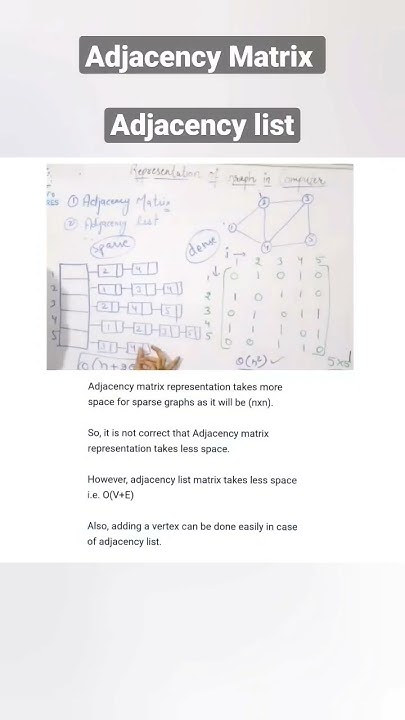 Adjacency Matrix
Adjacency list
Representation of graph in Computer
① Adjacency Matrix
② Adjacency List
sparse
dense
1 2 3 4 5
i →
2 3 4 5
1 0 1 0 1 0
2 1 0 1 1 0
3 0 1 0 1 1
4 1 1 1 0 1
5 0 0 1 1 0
2 4
1 3 4
2 4 5
1 2 3 5
3 4
O(n²) ✓
5x5
Adjacency matrix representation takes more
space for sparse graphs as it will be (nxn).
So, it is not correct that Adjacency matrix
representation takes less space.
However, adjacency list matrix takes less space
i.e. O(V+E)
Also, adding a vertex can be done easily in case
of adjacency list.